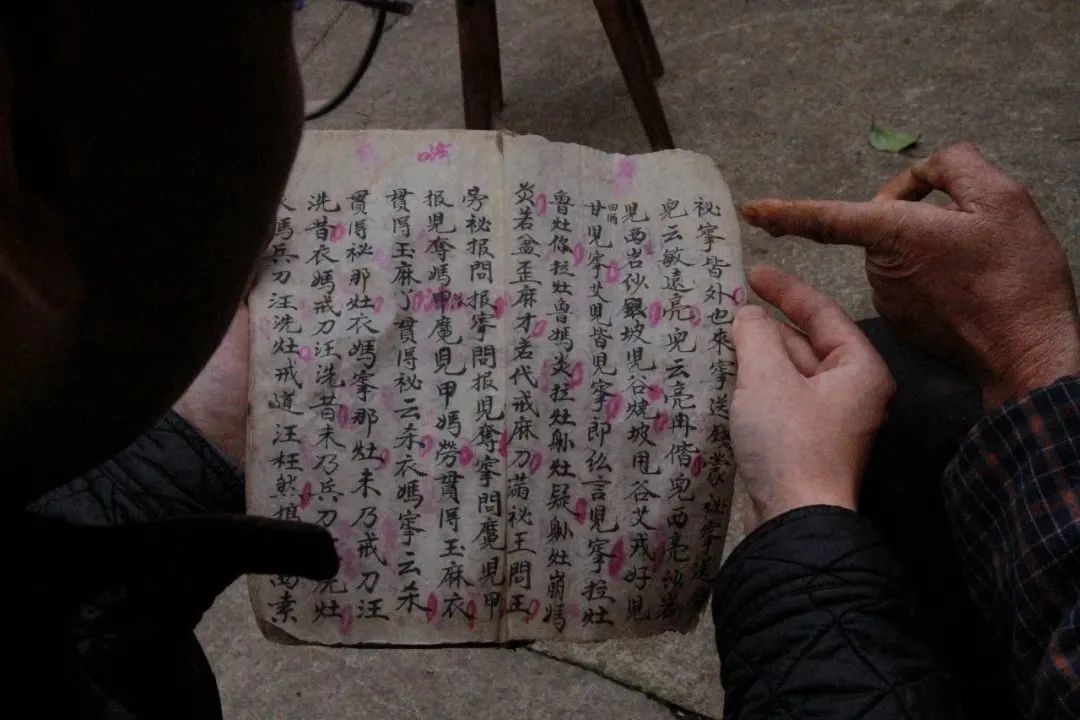 祕寧皆外也來寧送錢蒙祕寧送
皃云敏遠亮皃云亮冉偕皃西亮沙岩
見西岩砂銀坡見谷燒坡甩谷艾戎好見
甘見寧艾見皆見寧即么言見寧拉灶
魯灶你拉灶魯媽炎拉灶躰灶疑躰灶崩媽
炎若盆歪麻才若代戒麻刀滿祕王問王
旁祕报問报寧問报見奪寧問魔見甲
报見奪媽甲魔見甲媽勞貫得玉麻衣
貫得玉麻了貫得祕云杀衣媽寧云杀
貫得祕那灶衣媽寧那灶未乃戒刀汪
洗昔衣媽戒刀汪洗昔未乃兵刀洗灶
馬兵刀汪洗灶戒道汪枉然素